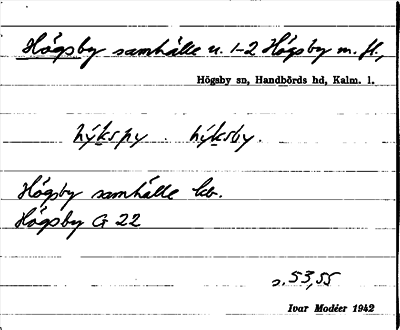 Högsby samhälle u. 1-2 Högsby m. fl.,
Högsby sn, Handbörds hd, Kalm. l.
hýkspy . hýksby.
Högsby samhälle kv.
Högsby G 22
s. 53, 55
Ivar Modéer 1942